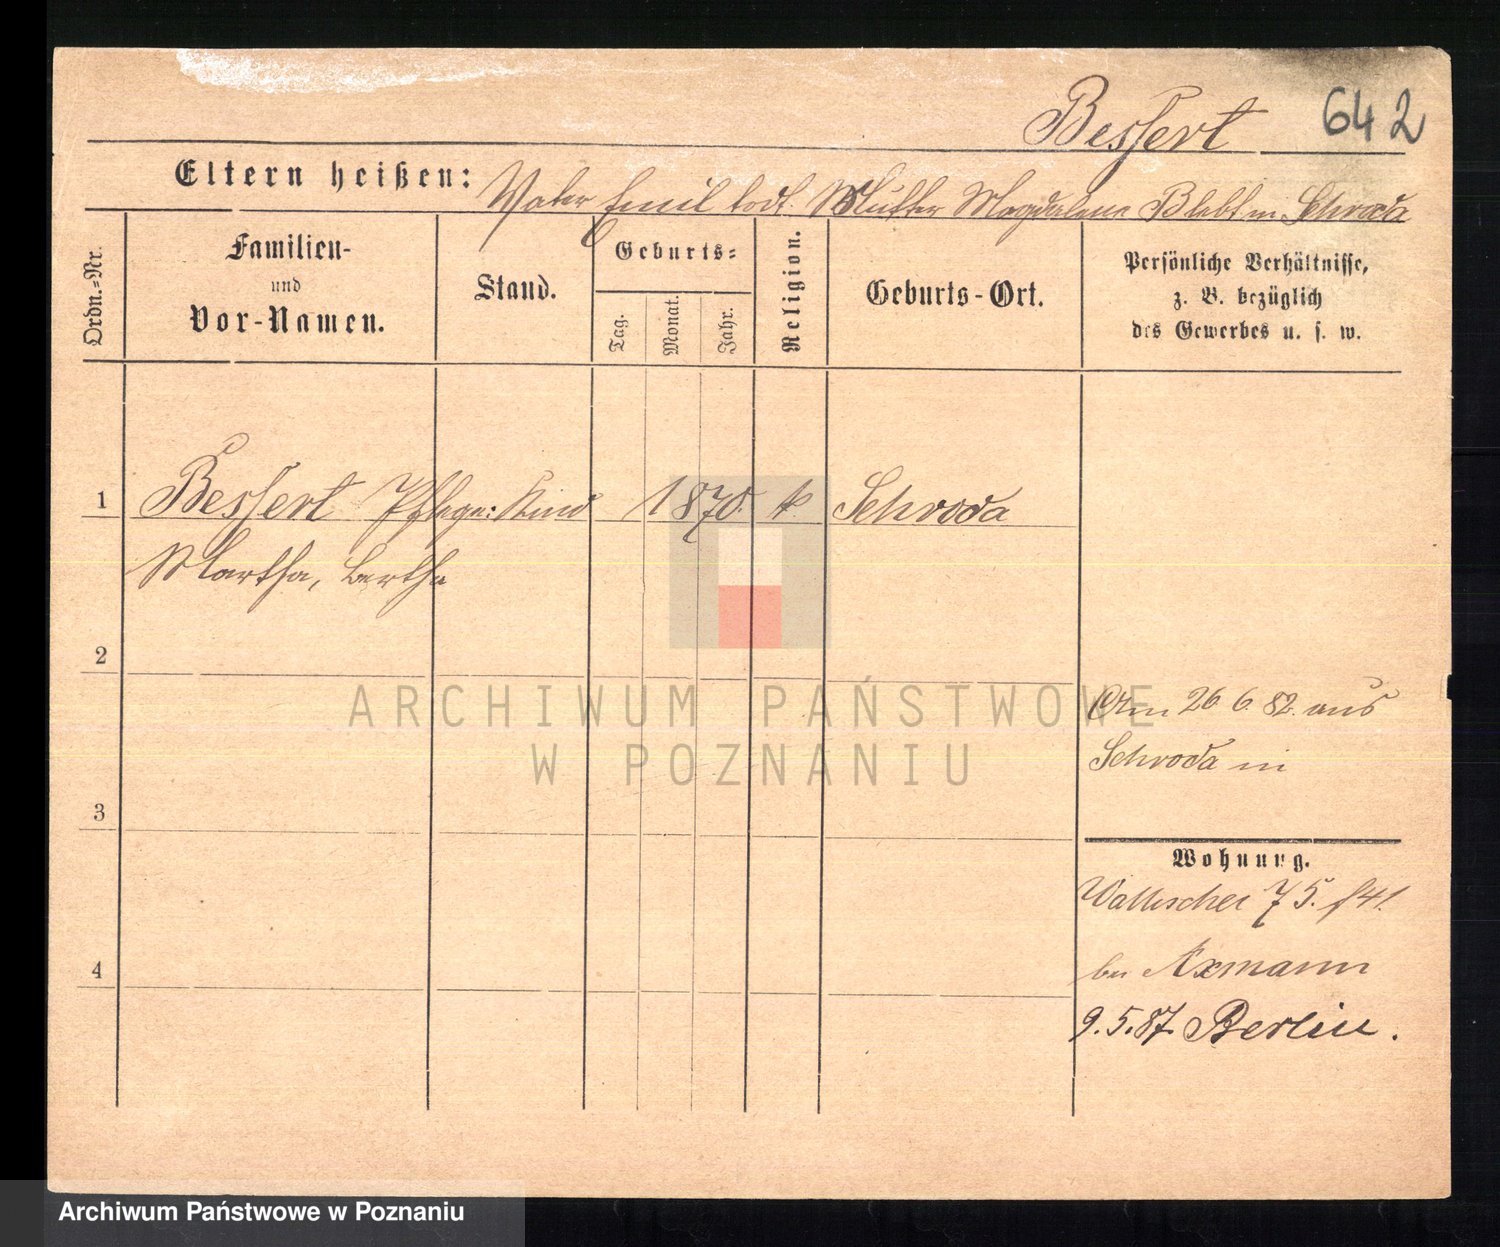 Bessert 642
Eltern heißen: Vater Emil todt. Mutter Magdalena B lebt in Schroda
Ordn.-Nr.
Familien-
und
Vor-Namen.
Stand.
Geburts-
Tag.
Monat.
Jahr.
Religion.
Geburts-Ort.
Persönliche Verhältnisse,
z. B. bezüglich
des Gewerbes u. s. w.
1 Bessert Pflege: Kind 1870. k Schroda
Martha, Bertha
2
ARCHIWUM PAŃSTWOWE
W POZNANIU
Am 26 6. 82. aus
Schroda in
3
Wohnung.
Wallischei 75.
bei Axmann
4
9.5.87. Berlin.
Archiwum Państwowe w Poznaniu